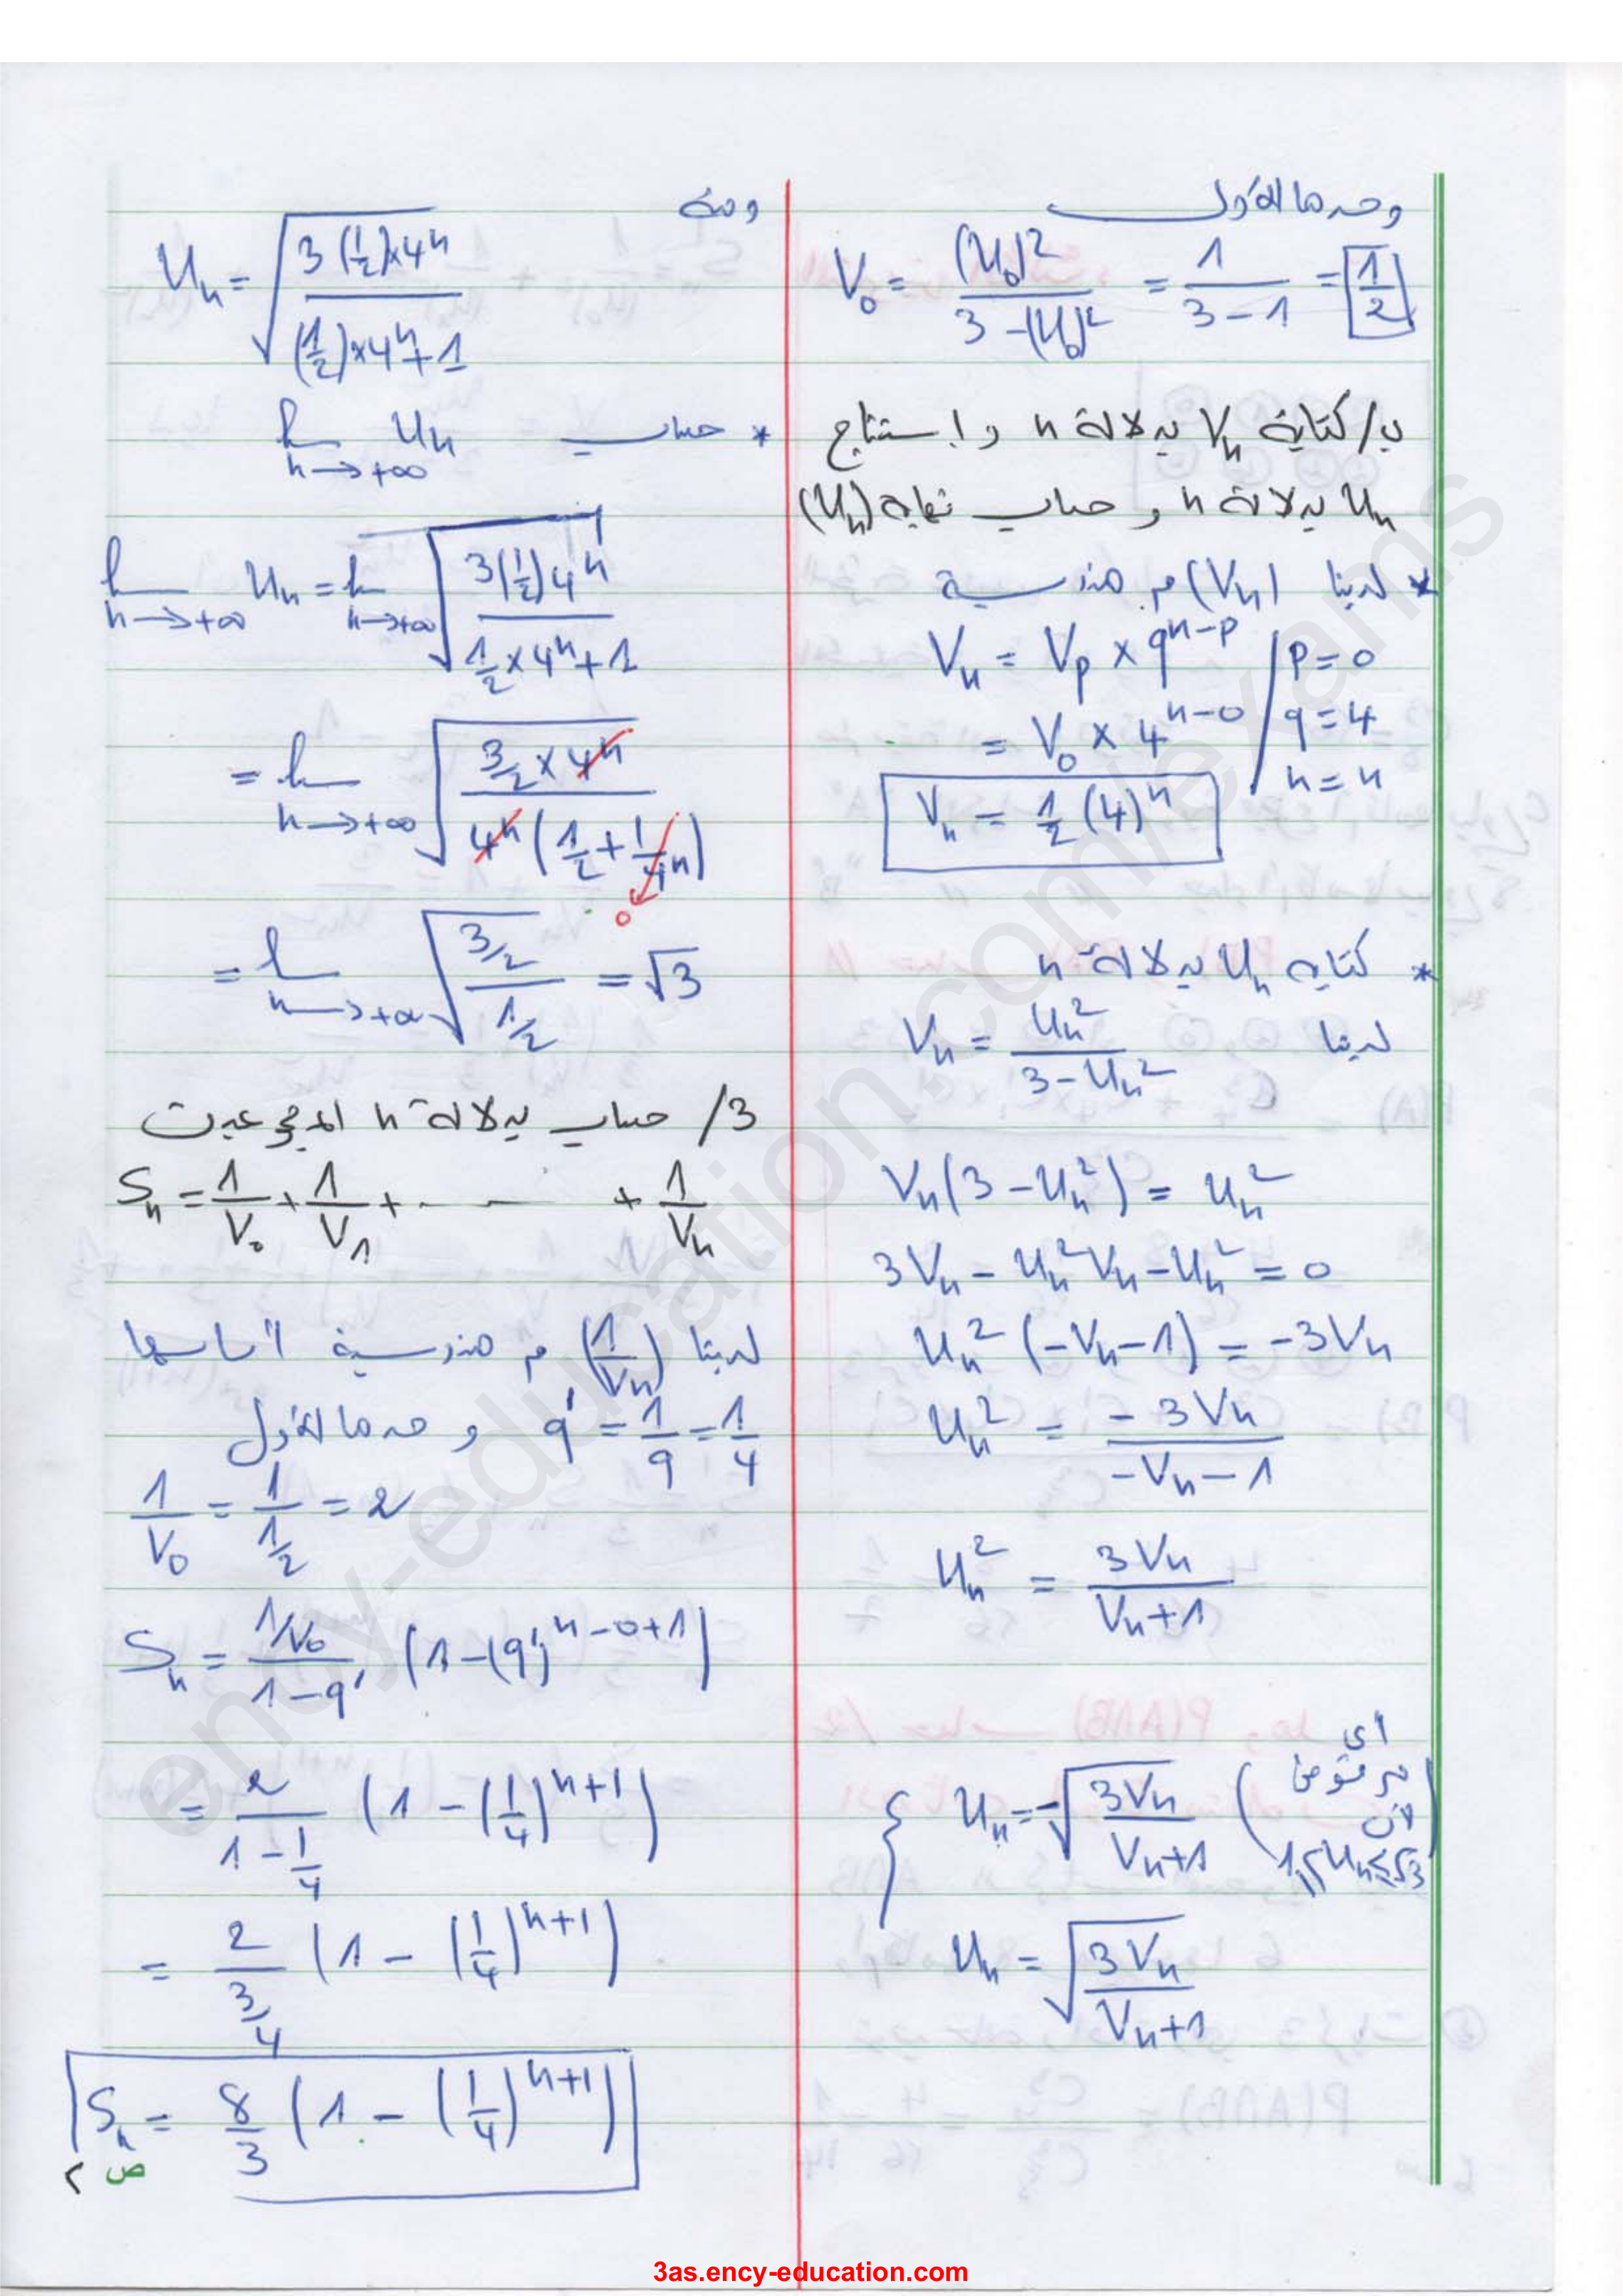 وحدها الأول
V₀ = (U₀)² / (3 - (U₀)²) = 1 / (3 - 1) = 1/2
ب/ كتابة Vₙ بدلالة n واستنتاج
Uₙ بدلالة n وحساب نهاية (Uₙ)
* لدينا (Vₙ) م هندسية
Vₙ = V_p × q^(n-p) / p = 0
= V₀ × 4^(n-0) / q = 4
n = n
Vₙ = 1/2 (4)ⁿ
* كتابة Uₙ بدلالة n
لدينا Vₙ = Uₙ² / (3 - Uₙ²)
Vₙ(3 - Uₙ²) = Uₙ²
3Vₙ - Uₙ²Vₙ - Uₙ² = 0
Uₙ² (-Vₙ - 1) = -3Vₙ
Uₙ² = -3Vₙ / (-Vₙ - 1)
Uₙ² = 3Vₙ / (Vₙ + 1)
أي
{ Uₙ = -√(3Vₙ / (Vₙ + 1)) (مرفوض لأن 1 ≤ Uₙ ≤ √3)
Uₙ = √(3Vₙ / (Vₙ + 1))
ومنه
Uₙ = √(3(1/2)×4ⁿ / ((1/2)×4ⁿ + 1))
* حساب lim Uₙ
n→+∞
lim Uₙ = lim √(3(1/2)4ⁿ / (1/2 × 4ⁿ + 1))
n→+∞ n→+∞
= lim √(3/2 × 4ⁿ / (4ⁿ(1/2 + 1/4ⁿ)))
n→+∞
0
= lim √((3/2) / (1/2)) = √3
n→+∞
3/ حساب بدلالة n المجموعين
Sₙ = 1/V₀ + 1/V₁ + ... + 1/Vₙ
لدينا (1/Vₙ) م هندسية أساسها
q' = 1/q = 1/4 و حدها الأول
1/V₀ = 1/(1/2) = 2
Sₙ = (1/V₀) / (1 - q') (1 - (q')^(n-0+1))
= 2 / (1 - 1/4) (1 - (1/4)^(n+1))
= 2 / (3/4) (1 - (1/4)^(n+1))
Sₙ = 8/3 (1 - (1/4)^(n+1))
ص ٢
ency-education.com/exams
3as.ency-education.com